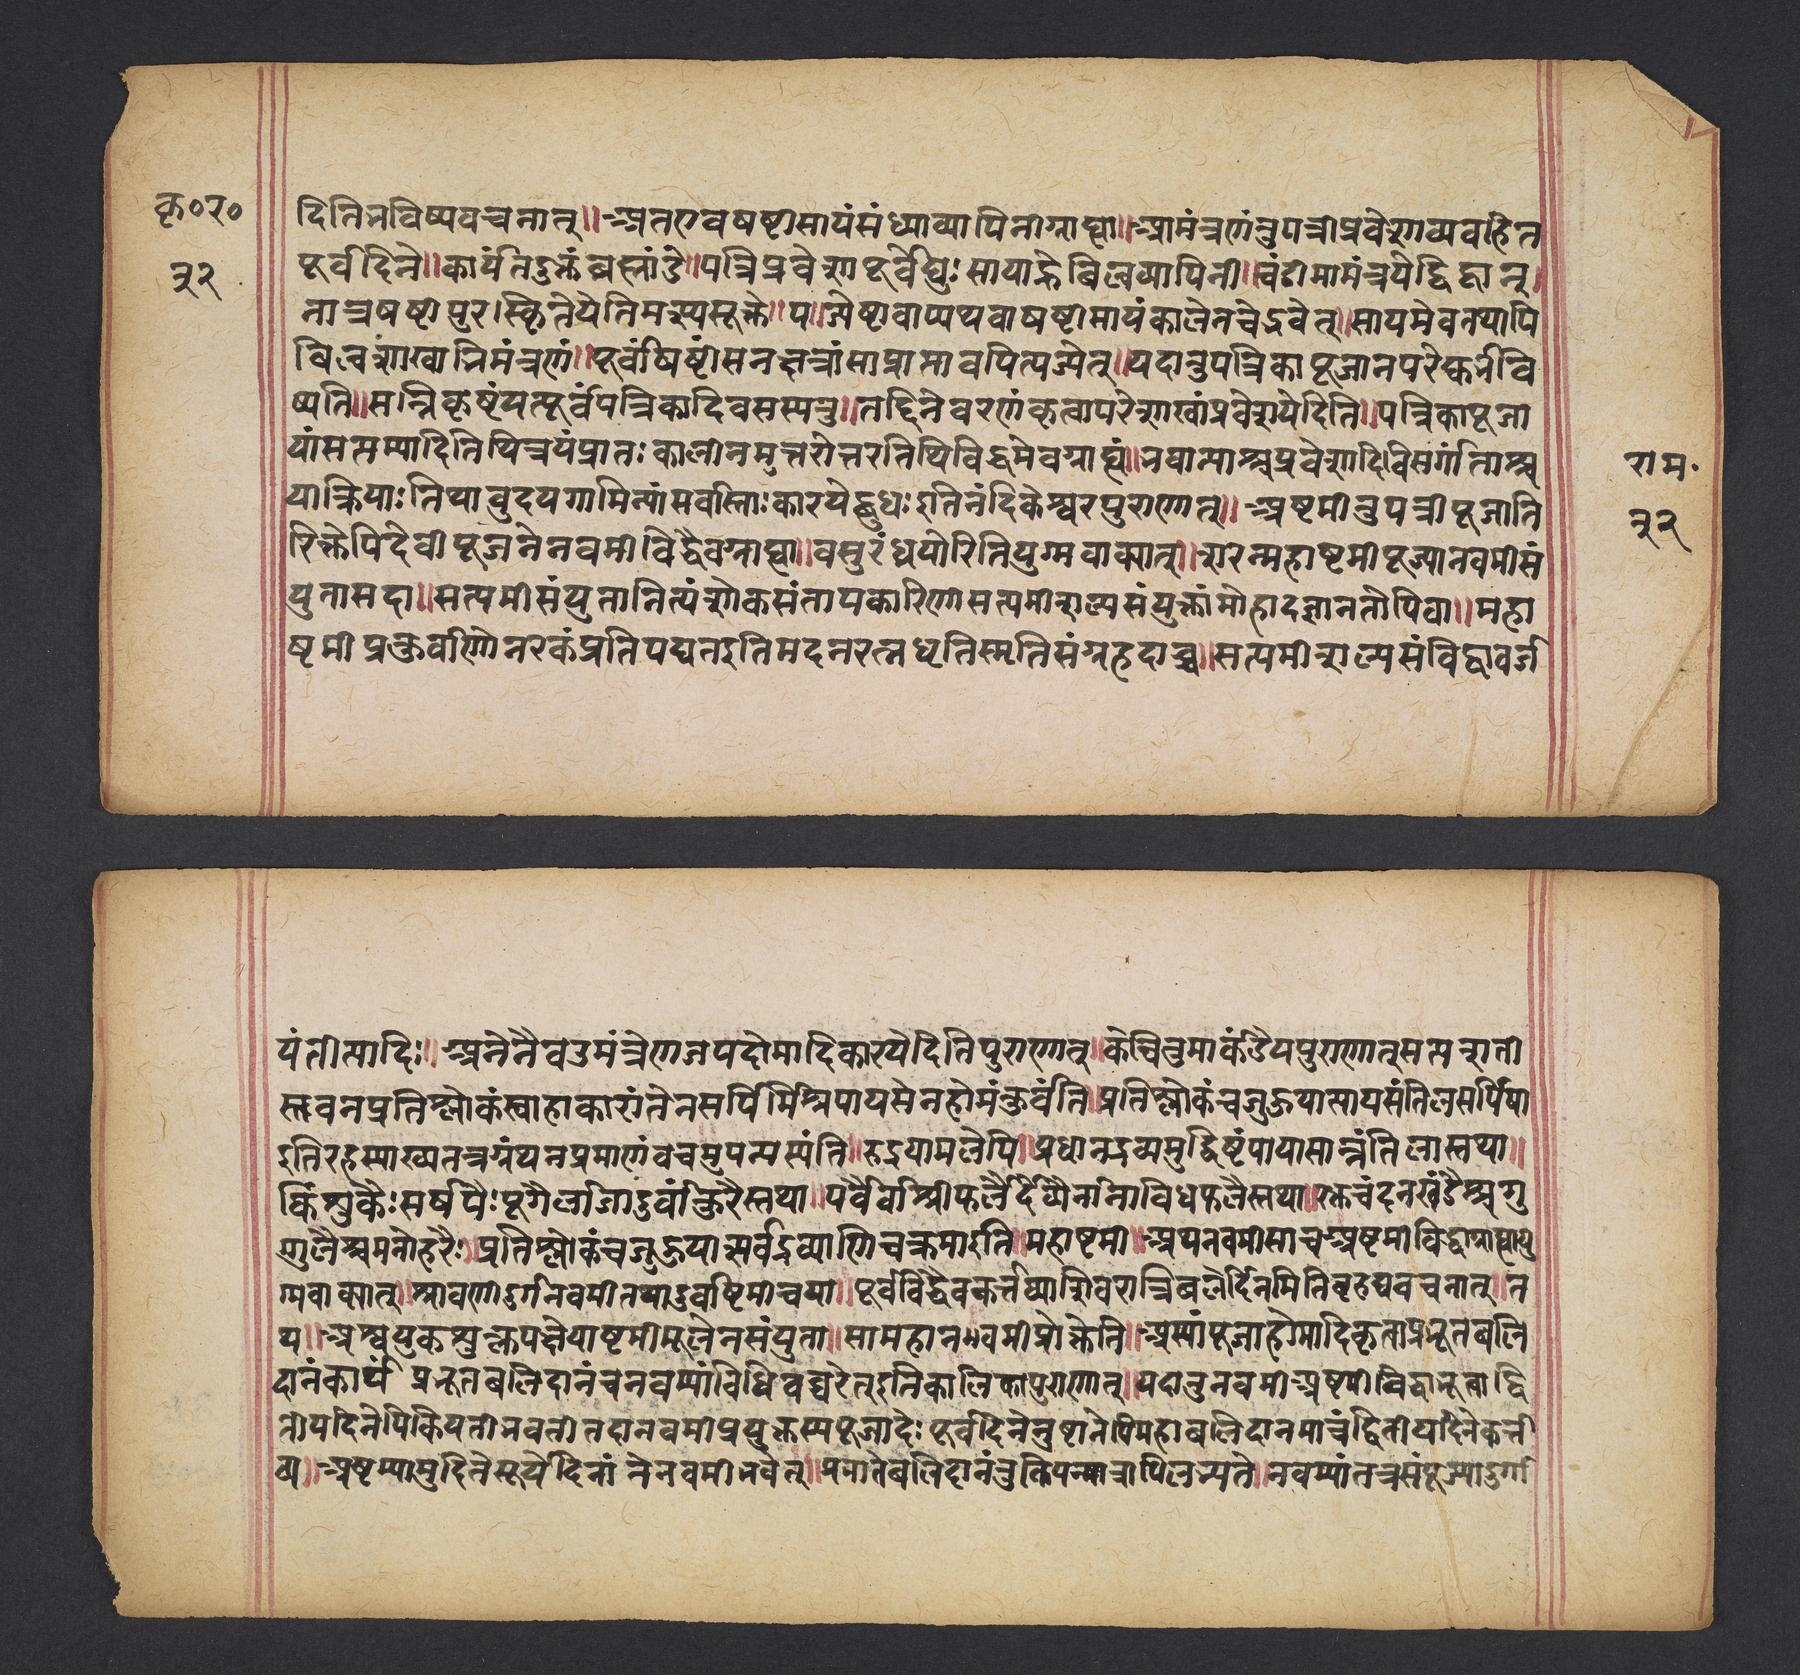 कृ०र०
३२
दितिभविष्यवचनात्॥अतएवषष्टीसायंसंध्याव्यापिनीग्राह्या॥आमंत्रणंतुपत्रीप्रवेशाव्यवहित
पूर्वदिने॥कार्यंतदुक्तंब्रह्मांडे॥पत्रिप्रवेशपूर्वेद्युःसायाह्नेबिल्वव्यापिनी॥चंडीमामंत्रयेद्विद्वान्
नात्रषष्टीपुर।स्क्रितेयेतिमत्स्यसूक्ते॥
बिल्वशाखानिमंत्रणं॥यदातुपत्रिकापूजानपरेह्नर्भवि
ष्यति॥सन्निकृष्टंयत्पूर्वंपत्रिकादिवसस्यतु॥तद्दिनेवरणंकृत्वापरेशाखांप्रवेशयेदिति॥पत्रिकापूजा
यांसप्तम्यादितिथित्रयंप्रातःकालीनमुत्तरोत्तरतिथिविद्धमेवग्राह्यं॥
याक्रियाःतिथावुदयगामिन्यांसर्वास्ताःकारयेद्बुधःइतिनंदिकेश्वरपुराणात्॥अष्टमीतुपत्रीपूजाति
रिक्तेपिदेवीपूजनेनवमीविद्धैवग्राह्या॥वसुरंध्रयोरितियुग्मवाक्यात्॥शरन्महाष्टमीपूज्यानवमीसं
युतासदा॥सप्तमीसंयुतानित्यंशोकसंतापकारिणीसप्तमीशल्यसंयुक्तांमोहादज्ञानतोपिवा॥महा
ष्टमीप्रकुर्वाणोनरकंप्रतिपद्यतइतिमदनरत्नधृतिस्मृतिसंग्रहदाच्च॥सप्तमीशल्यसंविद्धावर्ज
राम॰
३२
यंतीत्यादिः॥अनेनैवउमंत्रेणजपहोमादिकारयेदितिपुराणात्॥केचित्तुमार्कंडेयपुराणात्सप्तशती
स्तवनप्रतिश्लोकंस्वाहाकारांतेनसर्पिर्मिश्रपायसेनहोमंकुर्वंति॥प्रतिश्लोकंचजुहुयात्पायसंतिलसर्पिषा
इतिरहस्याख्यतत्रग्रंथनप्रमाणंवचमुपन्यस्यंति॥रुद्रयामलेपि॥प्रधानद्रव्यमुद्दिष्टंपायासान्नंतिलास्तथा॥
किंशुकैःसर्षपैःपूगैर्लाजादुर्वांकुरैस्तथा॥यवैर्वाश्रीफलैर्दिव्यैर्नानाविधफलैस्तथा॥रक्तचंदनखंडैश्चगु
ग्गुलैश्चमनोहरैः॥प्रतिश्लोकंचजुहुयात्सर्वद्रव्याणिचक्रमाइति॥महाष्टमी॥अथनवमीसाचअष्टमीविद्धाग्राह्यायु
ग्मवाक्यात्॥श्रावणीदुर्गनवमीतथादुर्वाष्टमीचया॥पूर्वविद्धैवकर्त्तव्याशिवरात्रिबलेर्दिनमितिबृहद्यवचनात्॥त
थ॥अश्वयुकशुक्लपक्षेयाष्टमीमूलेनसंयुता॥सामहानवमीप्रोक्तेति॥अस्यांपूजाहोमादिकृत्वाप्रभूतबलि
दानंकार्यं प्रभूतबलिदानंचनवम्यांविधिवच्चरेत्इतिकालिकापुराणात्॥यदातुनवमीअष्टमीविद्धाभूत्वाद्वि
तीयदिनेपिकियतीभवतीतदानवमीप्रयुक्तस्यपूजादेःपूर्वदिनेनुष्टानेपिमहाबलिदानमात्रंद्वितीयदिनेकर्त्त
व्यं॥नवम्यांतत्रसंपूज्यादुर्गा